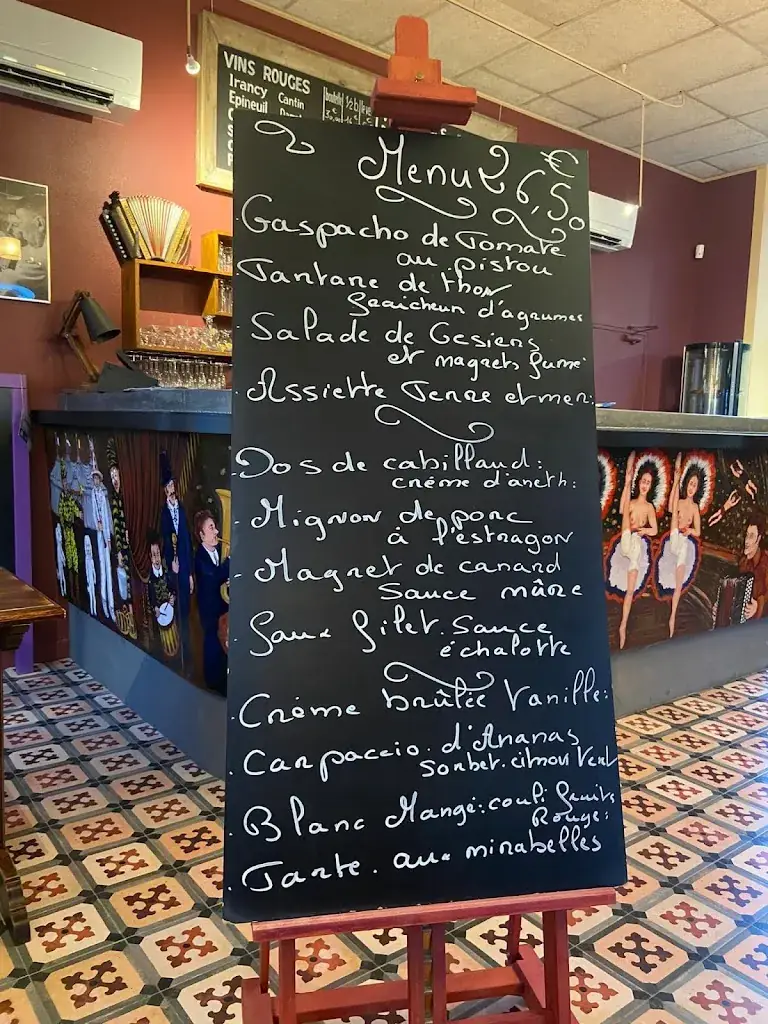 VINS ROUGES
Irancy Cantin
Epineuil
Menu 26,50 €
Gaspacho de Tomate
au pistou
Tartare de thon
fraicheur d'agrumes
Salade de Gesiers
et magrets fumé
Assiette Terre et mer:
Dos de cabillaud:
crème d'aneth:
Mignon de porc
à l'estragon
Magret de canard
Sauce mûre
Faux filet. Sauce
échalotte
Crème brûlée Vanille:
Carpaccio. d'Ananas
Sorbet. citron Vert
Blanc Mangé: couli fruits
Rouge:
Tarte. aux mirabelles